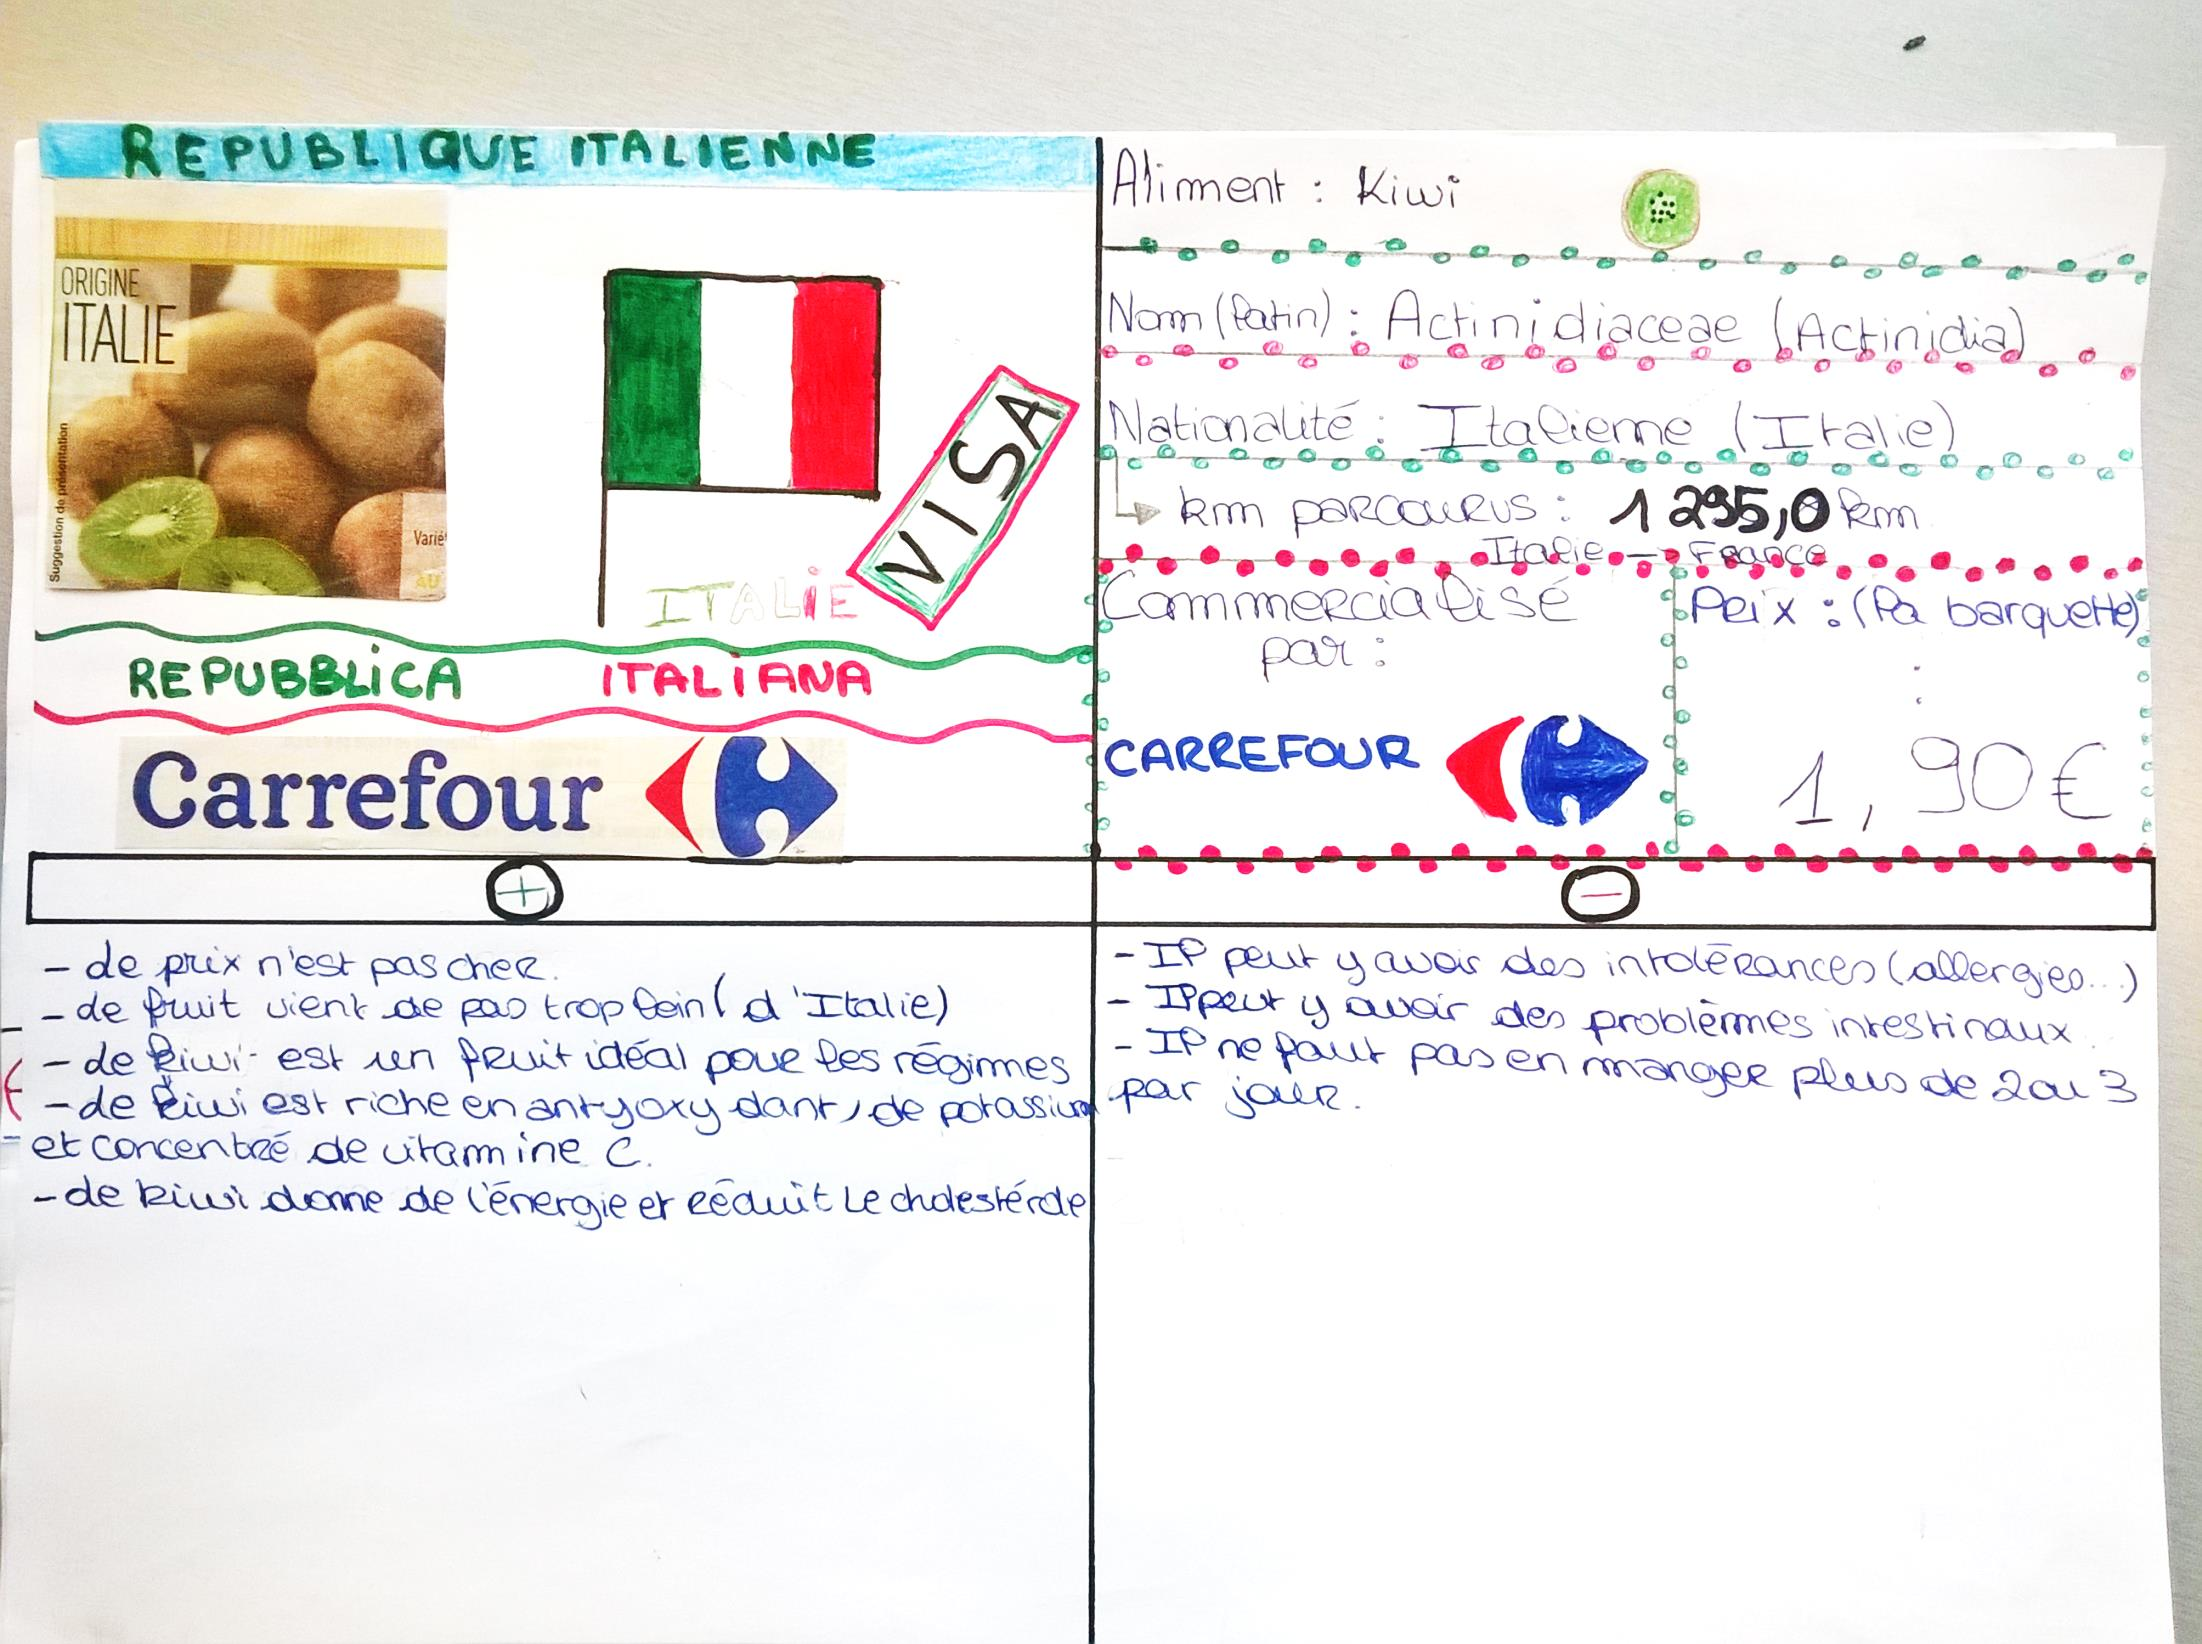 REPUBLIQUE ITALIENNE
ORIGINE
ITALIE
Suggestion de présentation
Varié
AU
VISA
ITALIE
REPUBBLICA ITALIANA
Carrefour
Aliment : Kiwi
Nom (latin) : Actinidiaceae (Actinidia)
Nationalité : Italienne (Italie)
km parcourus : 1 295,0 km
Italie → France
Commercialisé
par :
CARREFOUR
Prix : (la barquette)
:
1,90€
+
- Le prix n'est pas cher.
- Le fruit vient de pas trop loin (d'Italie)
- Le kiwi est un fruit idéal pour les régimes
- Le kiwi est riche en antyoxydant, de potassium
et concentré de vitamine C.
- Le kiwi donne de l'énergie et réduit le cholestérole
-
- Il peut y avoir des intolérances (allergies...)
- Il peut y avoir des problèmes intestinaux.
- Il ne faut pas en manger plus de 2 ou 3
par jour.